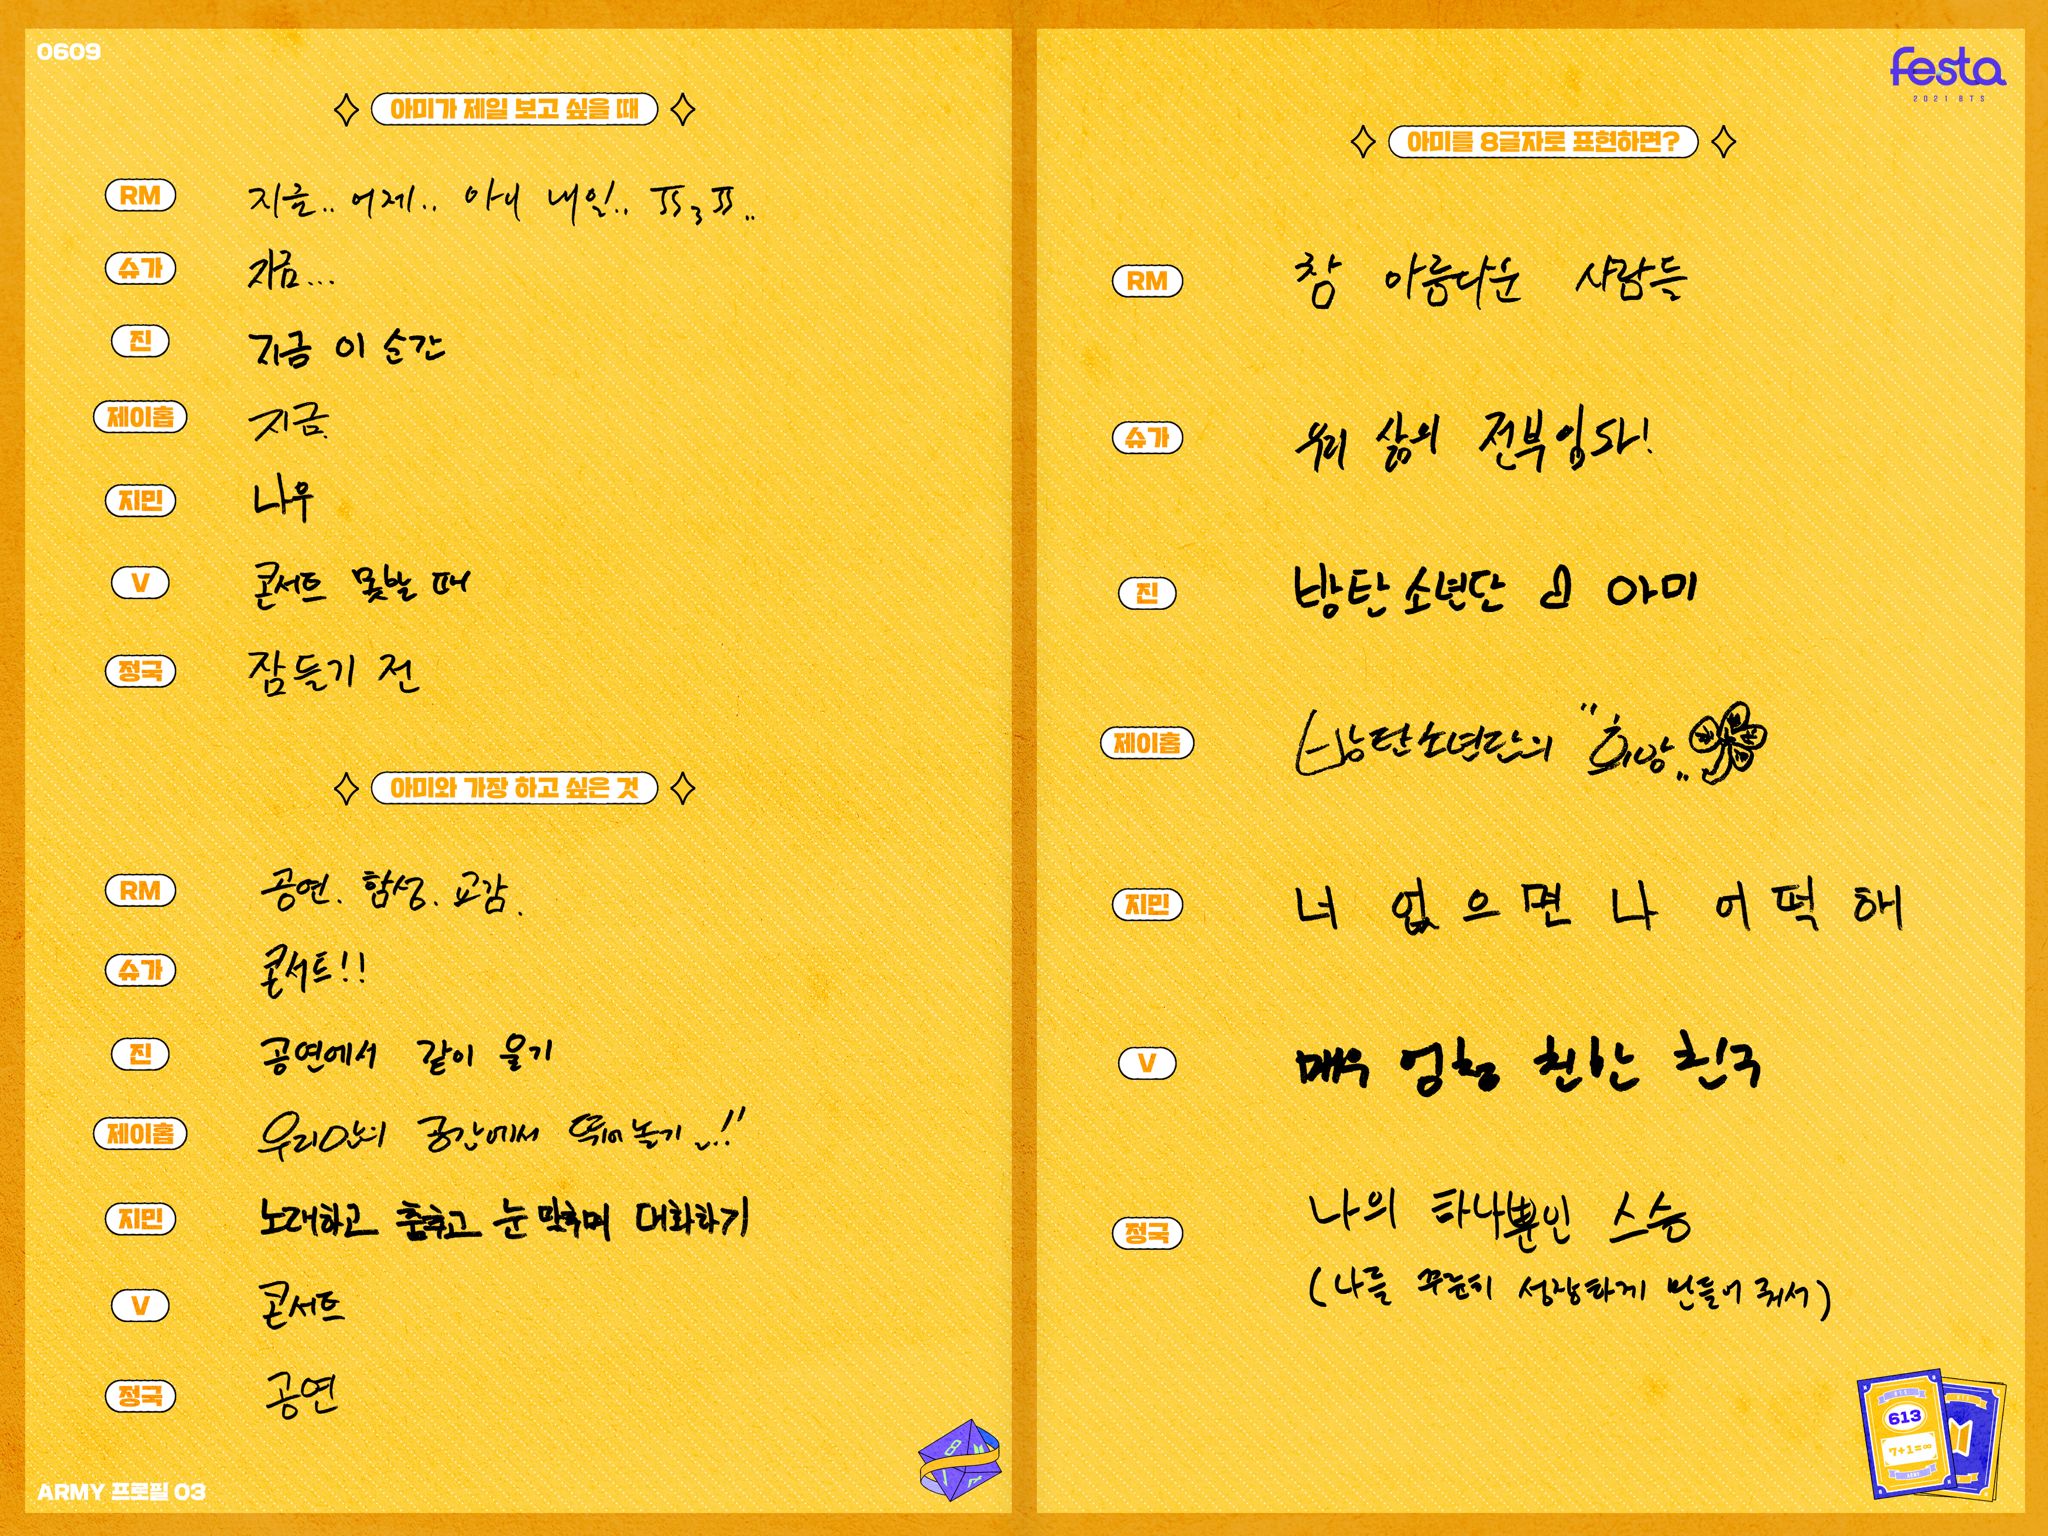 0609
아미가 제일 보고 싶을 때
RM 지금.. 어제.. 아니 내일.. ㅠㅠ3ㅠㅠ..
슈가 지금...
진 지금 이 순간
제이홉 지금.
지민 나우
V 콘서트 못할 때
정국 잠들기 전
아미와 가장 하고 싶은 것
RM 공연. 함성. 교감.
슈가 콘서트!!
진 공연에서 같이 울기
제이홉 우리만의 공간에서 뛰어놀기 ..!!
지민 노래하고 춤추고 눈 맞추며 대화하기
V 콘서트
정국 공연
ARMY 프로필 03
festa
2021 BTS
아미를 8글자로 표현하면?
RM 참 아름다운 사람들
슈가 우리 삶의 전부입니다!
진 방탄소년단 아미
제이홉 방탄소년단의 "희망"
지민 너 없으면 나 어떡해
V 매우 엄청 친한 친구
정국 나의 하나뿐인 스승
(나를 꾸준히 성장하게 만들어줘서)
613
7+1=∞
ARMY